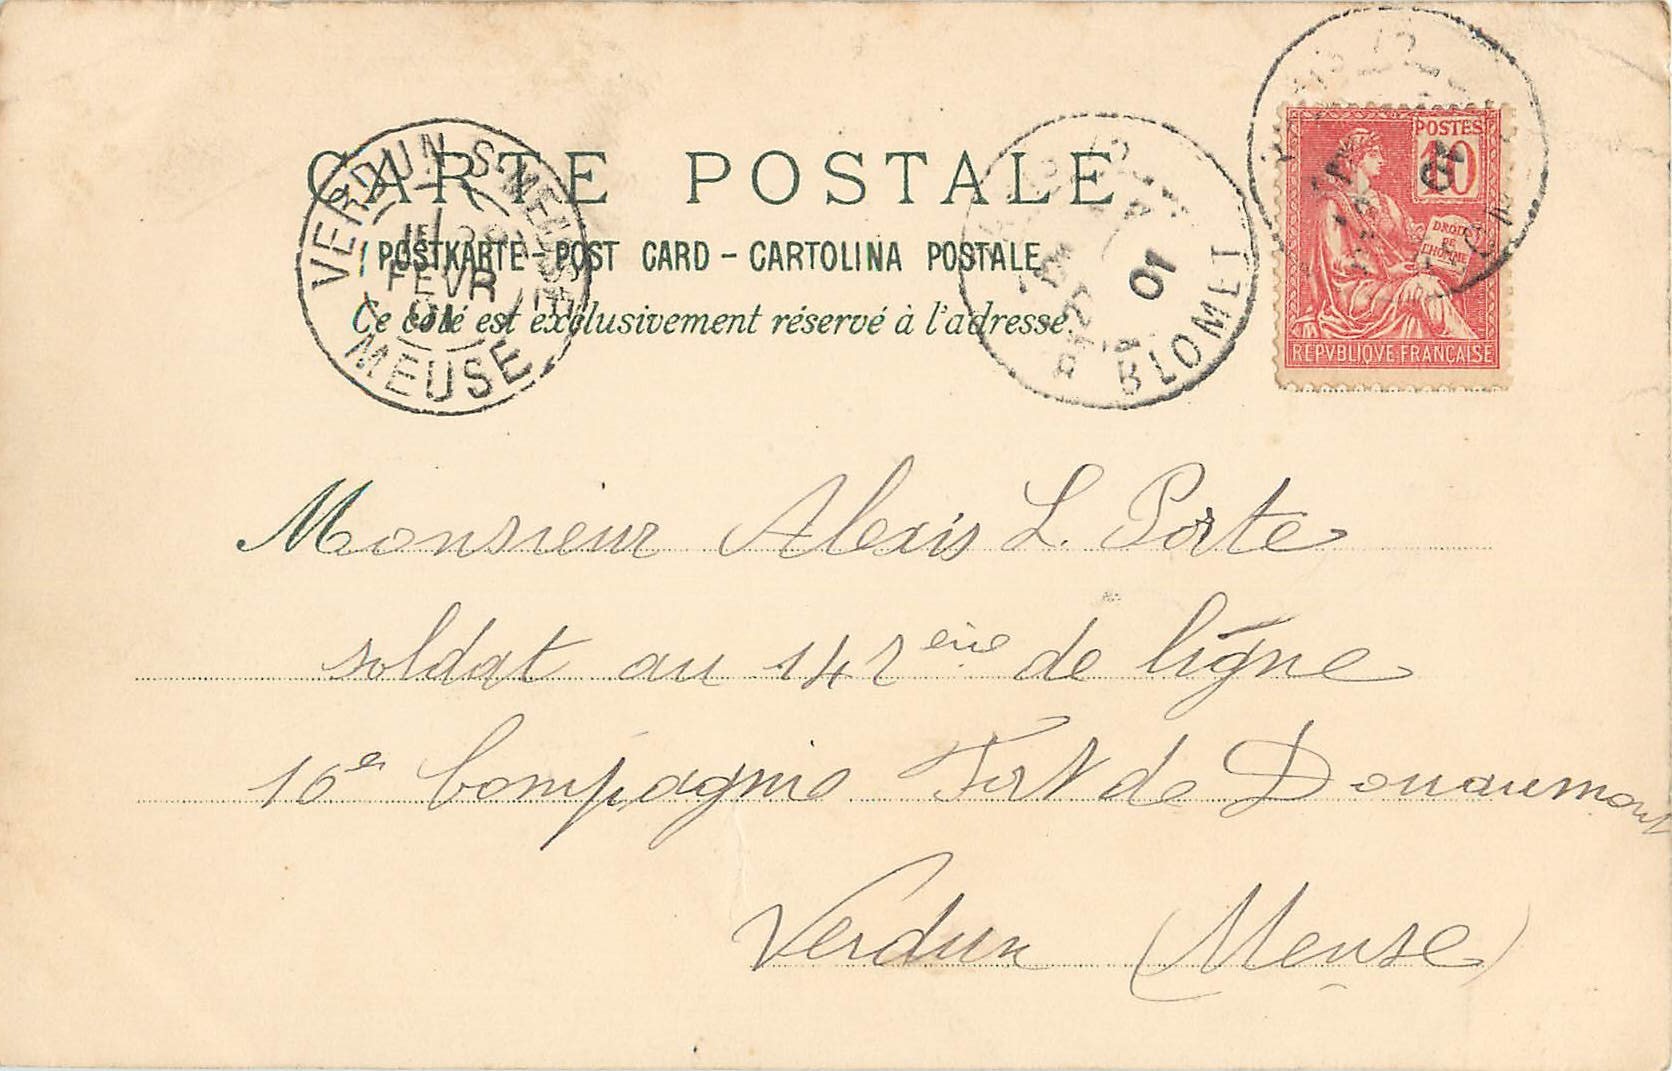 CARTE POSTALE
POSTKARTE – POST CARD – CARTOLINA POSTALE
Ce côté est exclusivement réservé à l'adresse.
VERDUN S-MEUSE
FEVR
01
MEUSE
01
BLOMET
POSTES
10
DROITS DE L'HOMME
REPVBLIQVE FRANÇAISE
Monsieur Alexis L. Porte
soldat au 142ème de ligne
16e Compagnie Fort de Douaumont
Verdun (Meuse)